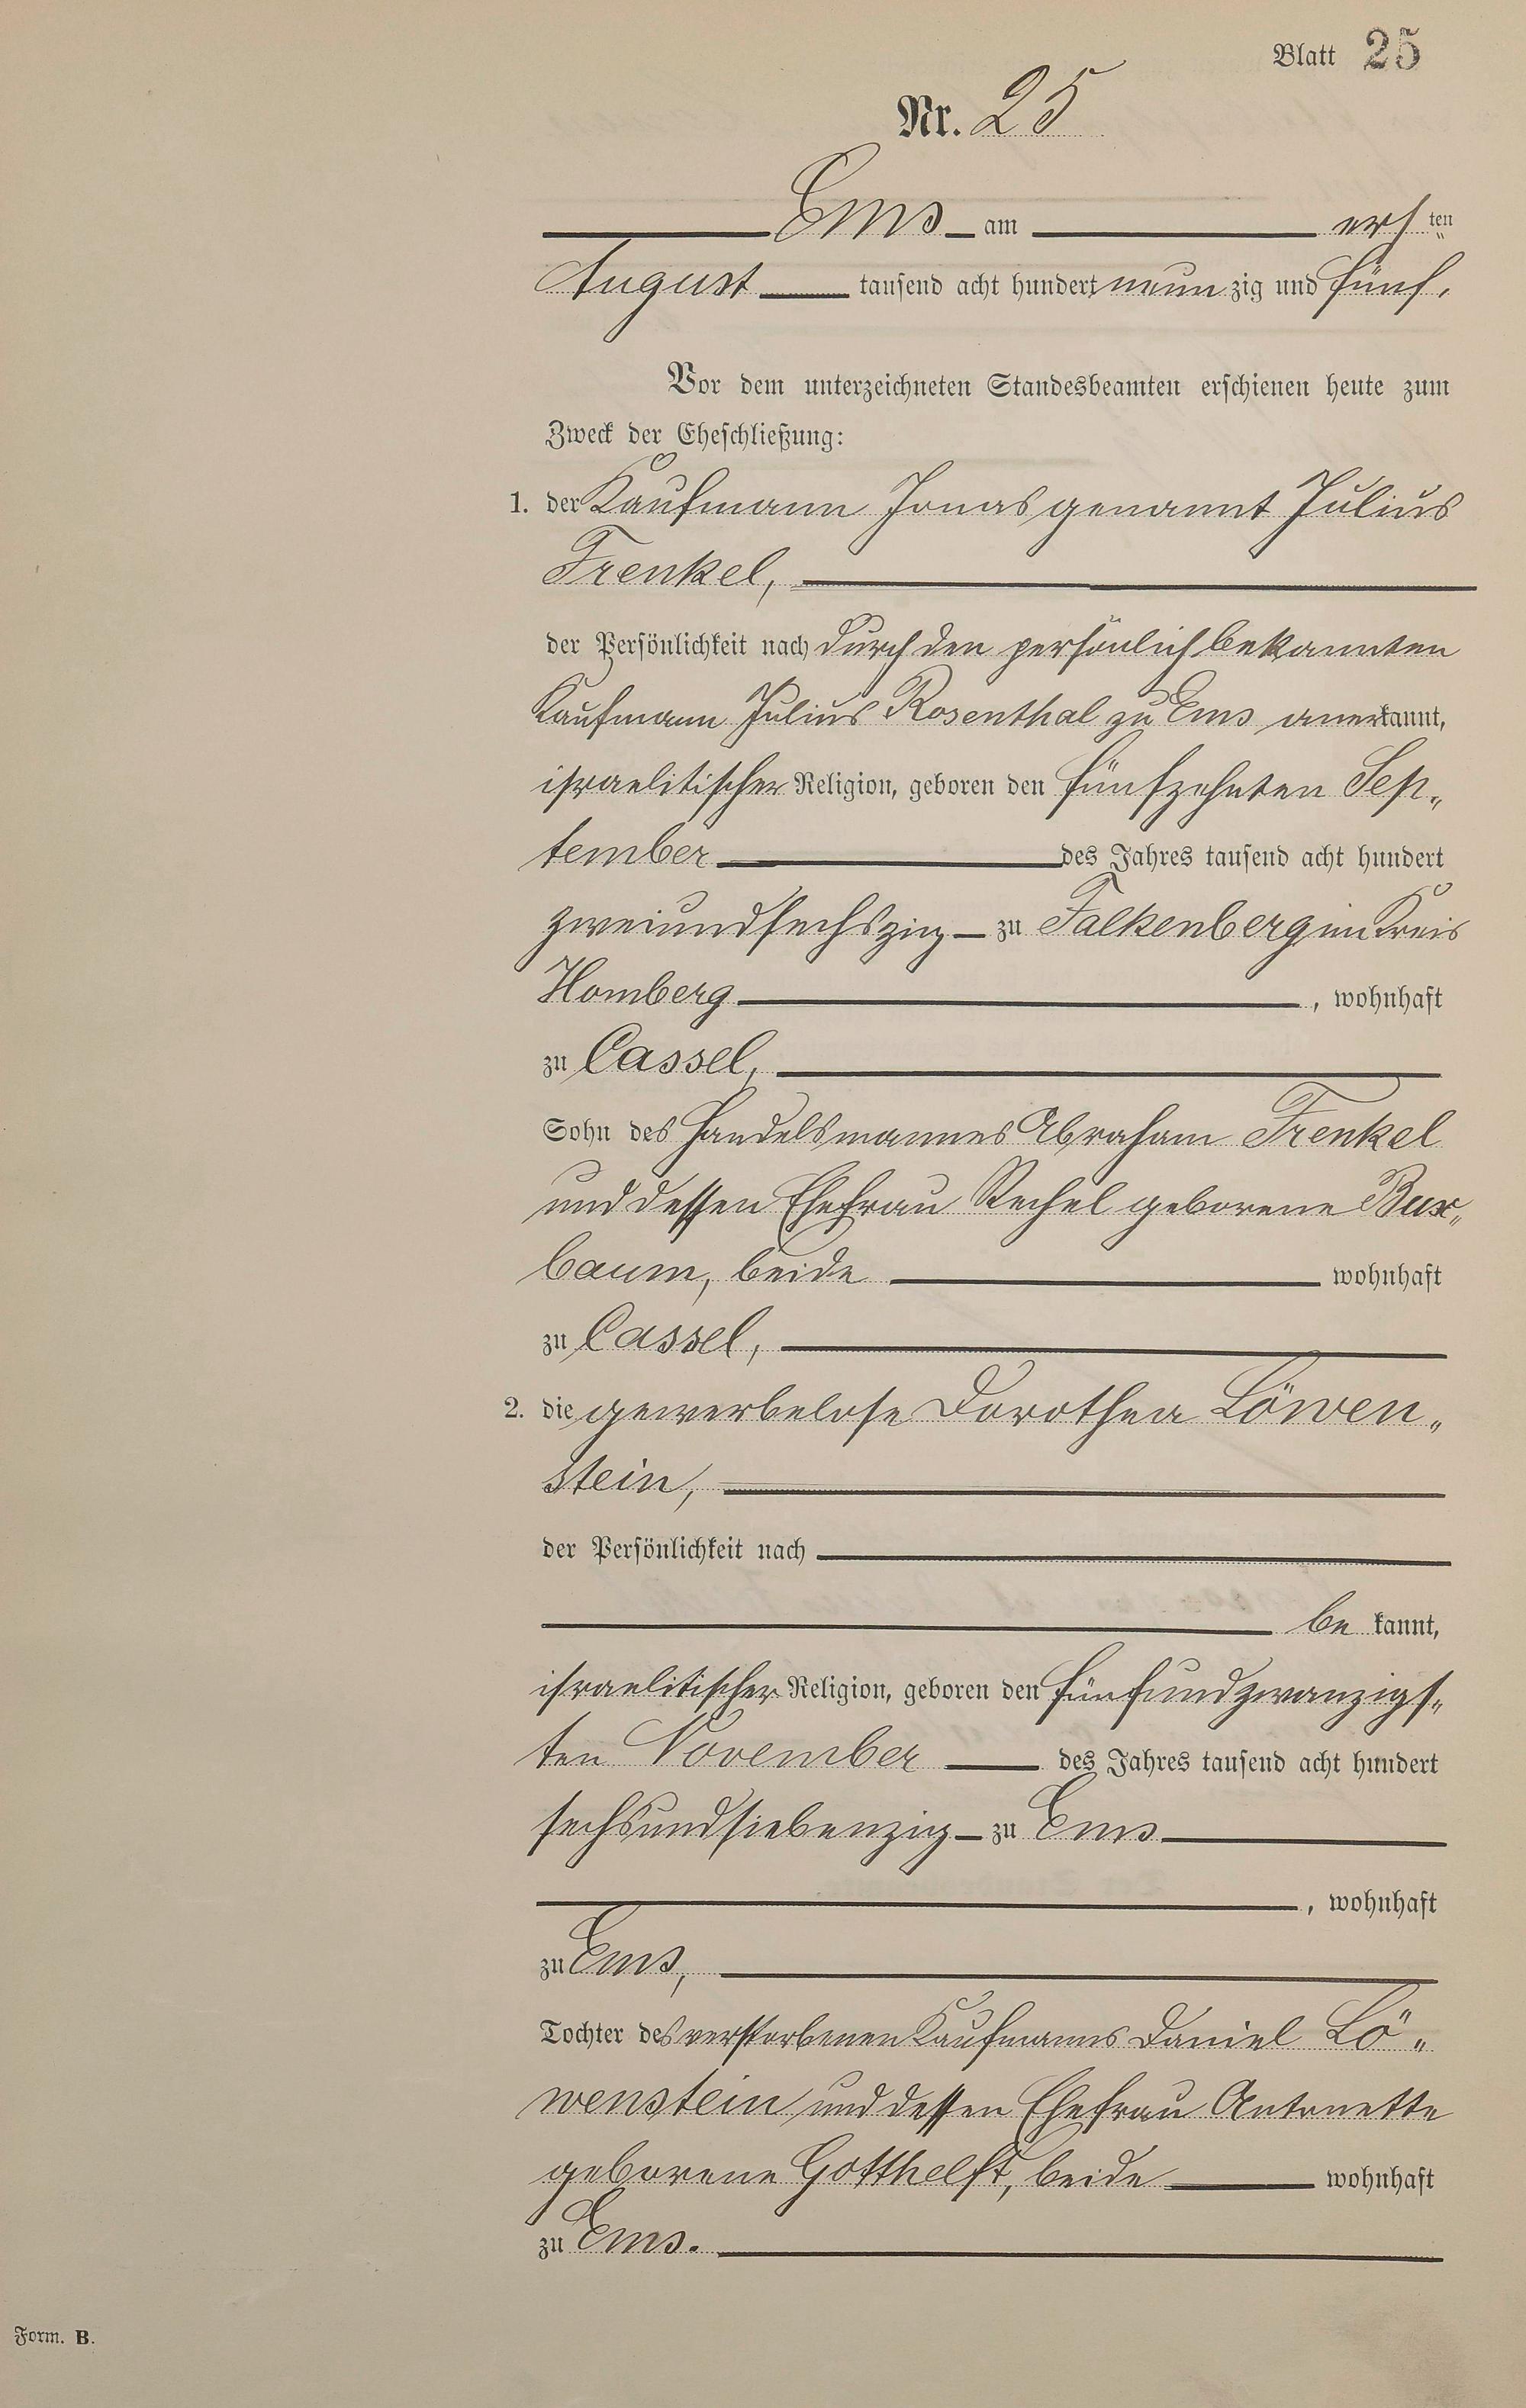 Blatt 25
Nr. 25
Ems am ersten
August tausend acht hundert neunzig und fünf.
Vor dem unterzeichneten Standesbeamten erschienen heute zum
Zweck der Eheschließung:
1. der Kaufmann Jonas genannt Julius
Frenkel,
der Persönlichkeit nach durch den persönlich bekannten
Kaufmann Julius Rosenthal zu Ems anerkannt,
israelitischer Religion, geboren den fünfzehnten Sep„
tember des Jahres tausend acht hundert
zweiundsechszig zu Falkenberg im Kreis
Homberg, wohnhaft
zu Cassel,
Sohn des Handelsmannes Abraham Frenkel
und dessen Ehefrau Rechel geborene Bux„
baum, beide wohnhaft
zu Cassel,
2. die gewerbelose Dorothea Löwen„
stein,
der Persönlichkeit nach
be kannt,
israelitischer Religion, geboren den fünfundzwanzigs„
ten November des Jahres tausend acht hundert
sechsundsiebenzig zu Ems
, wohnhaft
zu Ems,
Tochter des verstorbenen Kaufmanns Daniel Lö„
wenstein und dessen Ehefrau Antonette
geborene Gotthelft, beide wohnhaft
zu Ems.
Form. B.